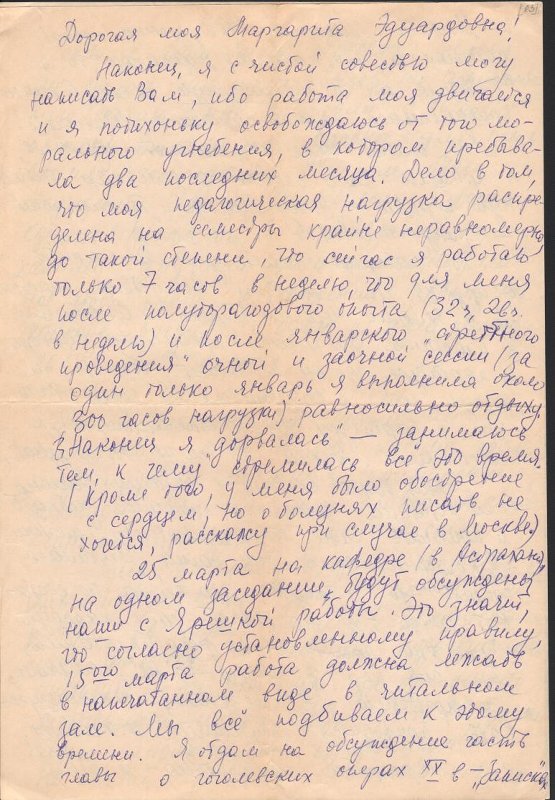 Дорогая моя Маргарита Эдуардовна!
Наконец, я с чистой совестью могу
написать Вам, ибо работа моя двигается
и я потихоньку освобождаюсь от того мо-
рального угнебения, в котором пребыва-
ла два последних месяца. Дело в том,
что моя педагогическая нагрузка распре-
делена на семестры крайне неравномерно,
до такой степени, что сейчас я работаю
только 7 часов в неделю, что для меня
после полуторагодового опыта (32ч, 26ч.
в неделю) и после январского „стреттного
проведения" очной и заочной сессии (за
один только январь я выполнила около
300 часов нагрузки) равносильно отдыху.
Наконец я „дорвалась" — занимаюсь
тем, к чему стремилась всё это время.
(Кроме того, у меня было обострение
с сердцем, но о болезнях писать не
хочется, расскажу при случае в Москве)
25 марта на кафедре (в Астрахани)
на одном заседании будут обсуждены
наши с Ярешкой работы. Это значит,
что согласно установленному правилу,
15ого марта работа должна лежать
в напечатанном виде в читальном
зале. Мы всё подбиваем к этому
времени. Я отдам на обсуждение часть
главы о гоголевских операх XX в — „Записках